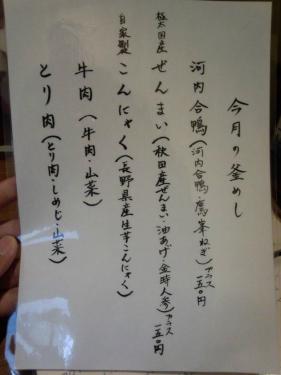 今月の釜めし
河内合鴨(河内合鴨・鷹峯ねぎ)プラス一五〇円
極太国産ぜんまい(秋田産ぜんまい・油あげ・金時人参)プラス一五〇円
自家製こんにゃく(長野県産生芋こんにゃく)
牛肉(牛肉・山菜)
とり肉(とり肉・しめじ・山菜)